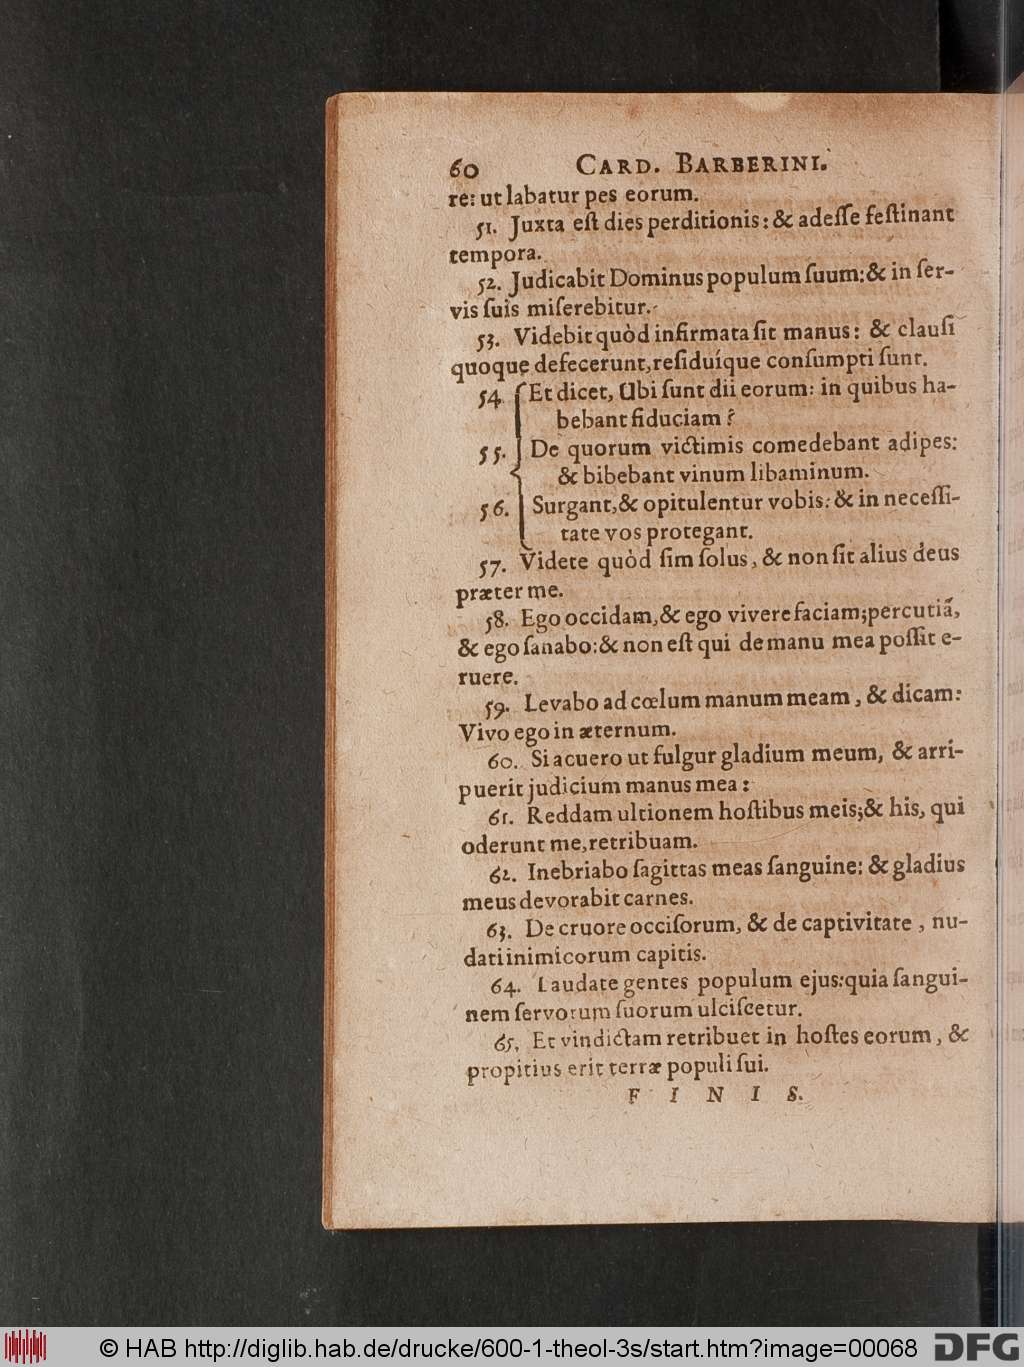 60 CARD. BARBERINI.
re: ut labatur pes eorum.
51. Juxta eſt dies perditionis: & adeſſe feſtinant
tempora.
52. Judicabit Dominus populum ſuum: & in ſer-
vis ſuis miſerebitur.
53. Videbit quòd infirmata ſit manus: & clauſi
quoque defecerunt, reſiduíque conſumpti ſunt.
54. Et dicet, Ubi ſunt dii eorum: in quibus ha-
bebant fiduciam?
55. De quorum victimis comedebant adipes:
& bibebant vinum libaminum.
56. Surgant, & opitulentur vobis: & in neceſſi-
tate vos protegant.
57. Videte quòd ſim ſolus, & non ſit alius deus
præter me.
58. Ego occidam, & ego vivere faciam; percutiã,
& ego ſanabo: & non eſt qui de manu mea poſſit e-
ruere.
59. Levabo ad cœlum manum meam, & dicam:
Vivo ego in æternum.
60. Si acuero ut fulgur gladium meum, & arri-
puerit judicium manus mea:
61. Reddam ultionem hoſtibus meis; & his, qui
oderunt me, retribuam.
62. Inebriabo ſagittas meas ſanguine: & gladius
meus devorabit carnes.
63. De cruore occiſorum, & de captivitate, nu-
dati inimicorum capitis.
64. Laudate gentes populum ejus: quia ſangui-
nem ſervorum ſuorum ulciſcetur.
65. Et vindictam retribuet in hoſtes eorum, &
propitius erit terræ populi ſui.
FINIS.
© HAB http://diglib.hab.de/drucke/600-1-theol-3s/start.htm?image=00068 DFG